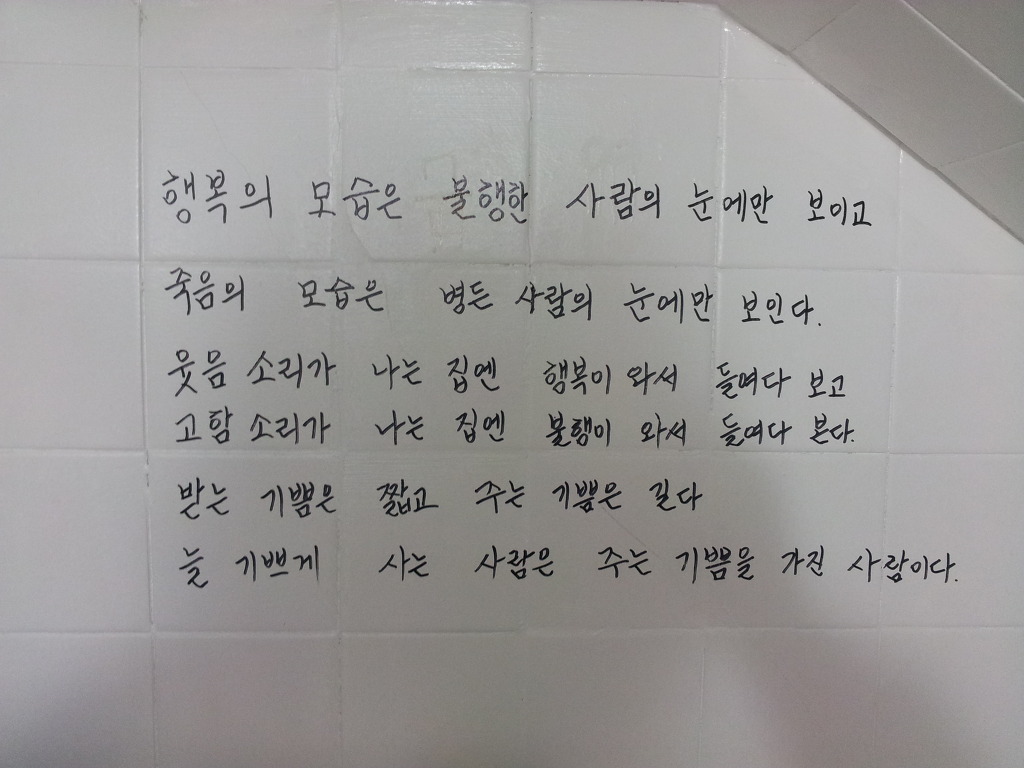 행복의 모습은 불행한 사람의 눈에만 보이고
죽음의 모습은 병든 사람의 눈에만 보인다.
웃음 소리가 나는 집엔 행복이 와서 들여다 보고
고함 소리가 나는 집엔 불행이 와서 들여다 본다.
받는 기쁨은 짧고 주는 기쁨은 길다
늘 기쁘게 사는 사람은 주는 기쁨을 가진 사람이다.